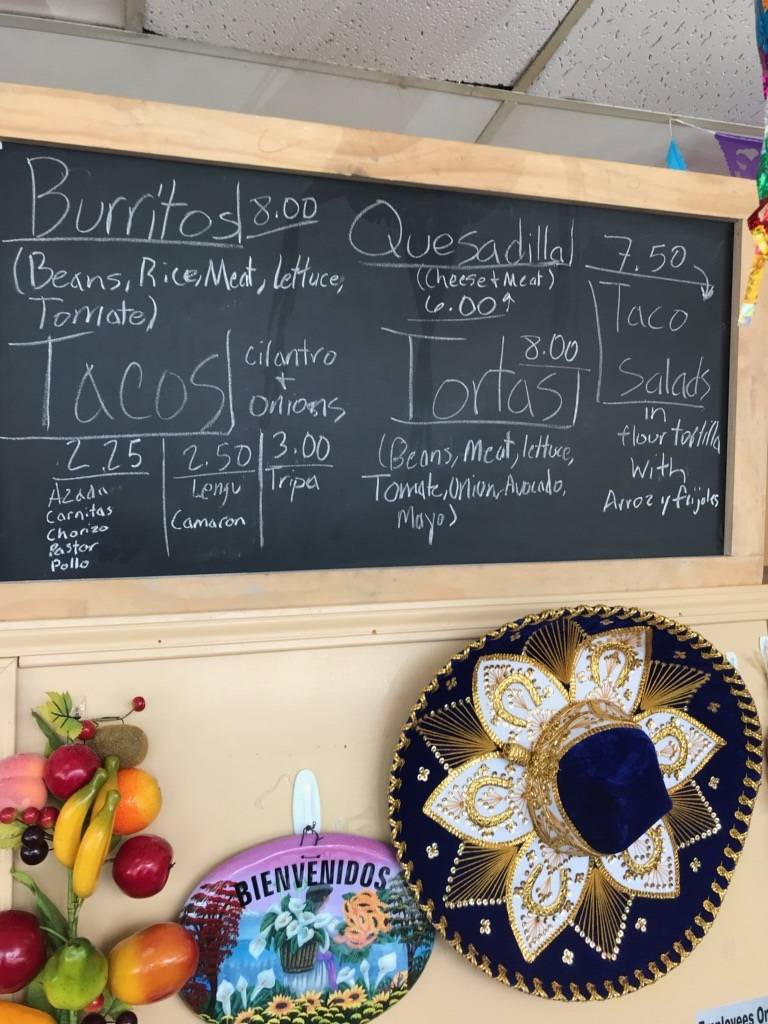 Burritos 8.00
(Beans, Rice, Meat, lettuce,
Tomate)
Tacos
cilantro
+
onions
2.25
Azada
Carnitas
Chorizo
Pastor
Pollo
2.50
Lengu
Camaron
3.00
Tripa
Quesadilla
(cheese + Meat)
6.00
8.00
Tortas
(Beans, Meat, lettuce,
Tomate, Onion, Avocado,
Mayo)
7.50
Taco
Salads
in
flour tortilla
with
Arroz y frijoles
BIENVENIDOS
Employees On